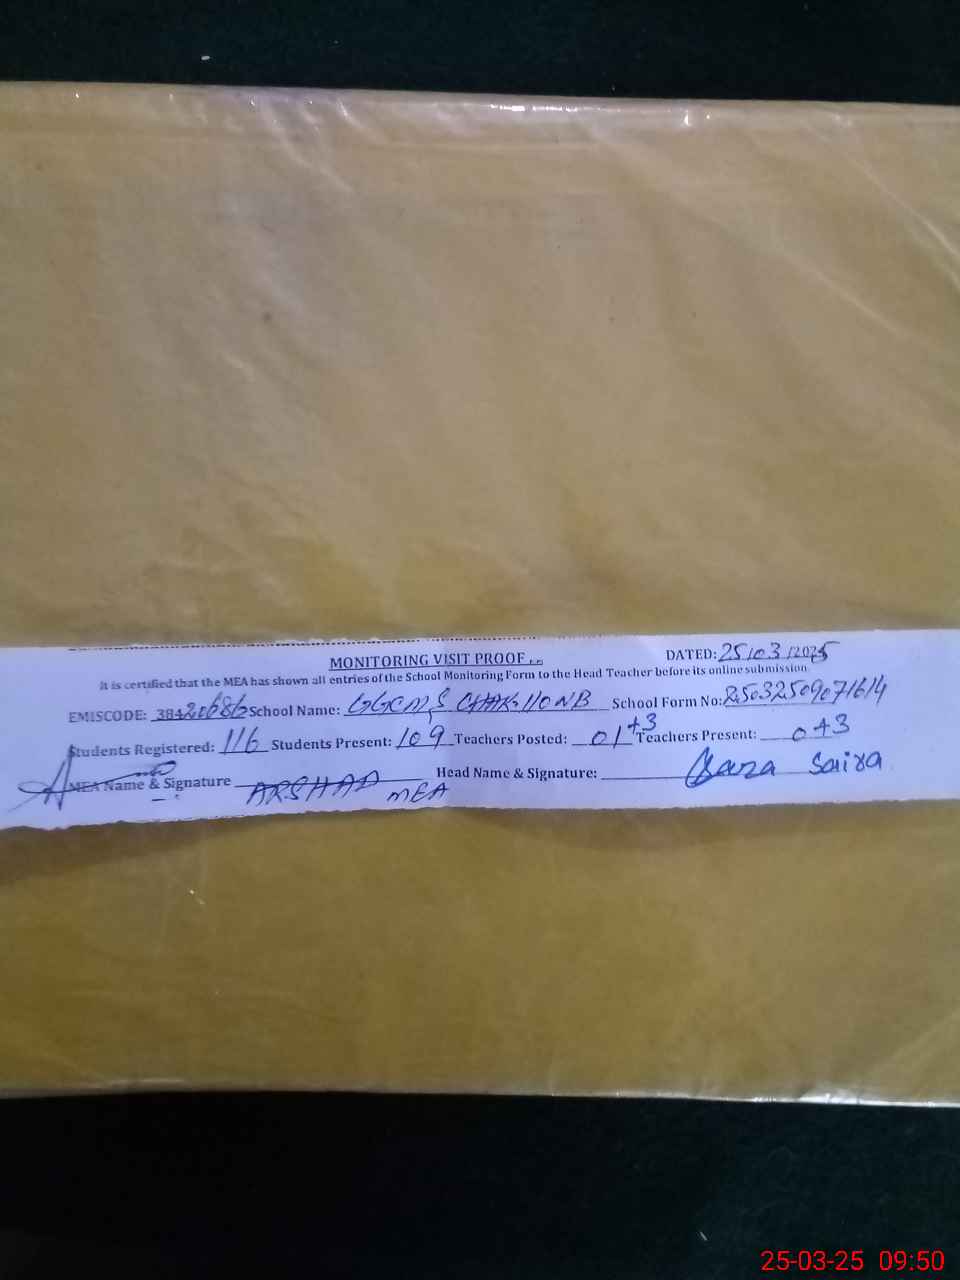 MONITORING VISIT PROOF DATED: 25/03/2025
It is certified that the MEA has shown all entries of the School Monitoring Form to the Head Teacher before its online submission
EMISCODE: 38420686 School Name: GGCMS CHAK 110 NB School Form No: 25032509071614
Students Registered: 116 Students Present: 109 Teachers Posted: 01+3 Teachers Present: 0+3
MEA Name & Signature ARSHAD Head Name & Signature: Saira
MEA
25-03-25 09:50